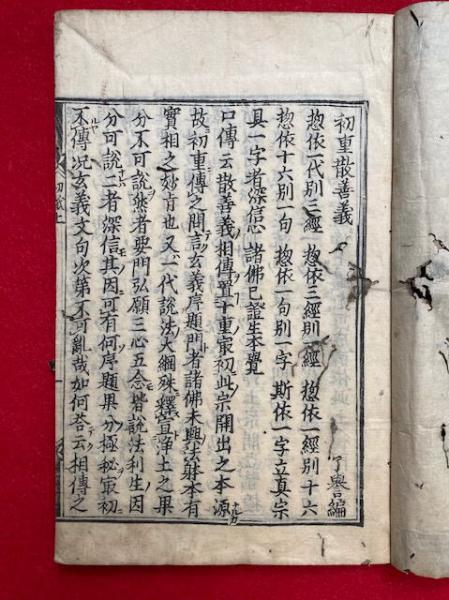 初重散善義 了譽編
惣依一代別三經 惣依三經別一經 惣依一經別十六
惣依十六別一句 惣依一句別一字 斯依一字立真宗
具一字者深信心 諸佛已證生本覺
口傳云散善義相傳置十重㝡初此宗開出之本源ナルカ
故初重傳之間言玄義序題門者諸佛未興法尓本有
實相之妙肯也又一代說法大綱殊釋㝎浄土之果
分不可說然者要門弘願三心五念皆說法利生因
分可說二者深信其因可有何序題果分極秘㝡初
不傳ルヤ況玄義文句次第不可亂哉如何荅云相傳之